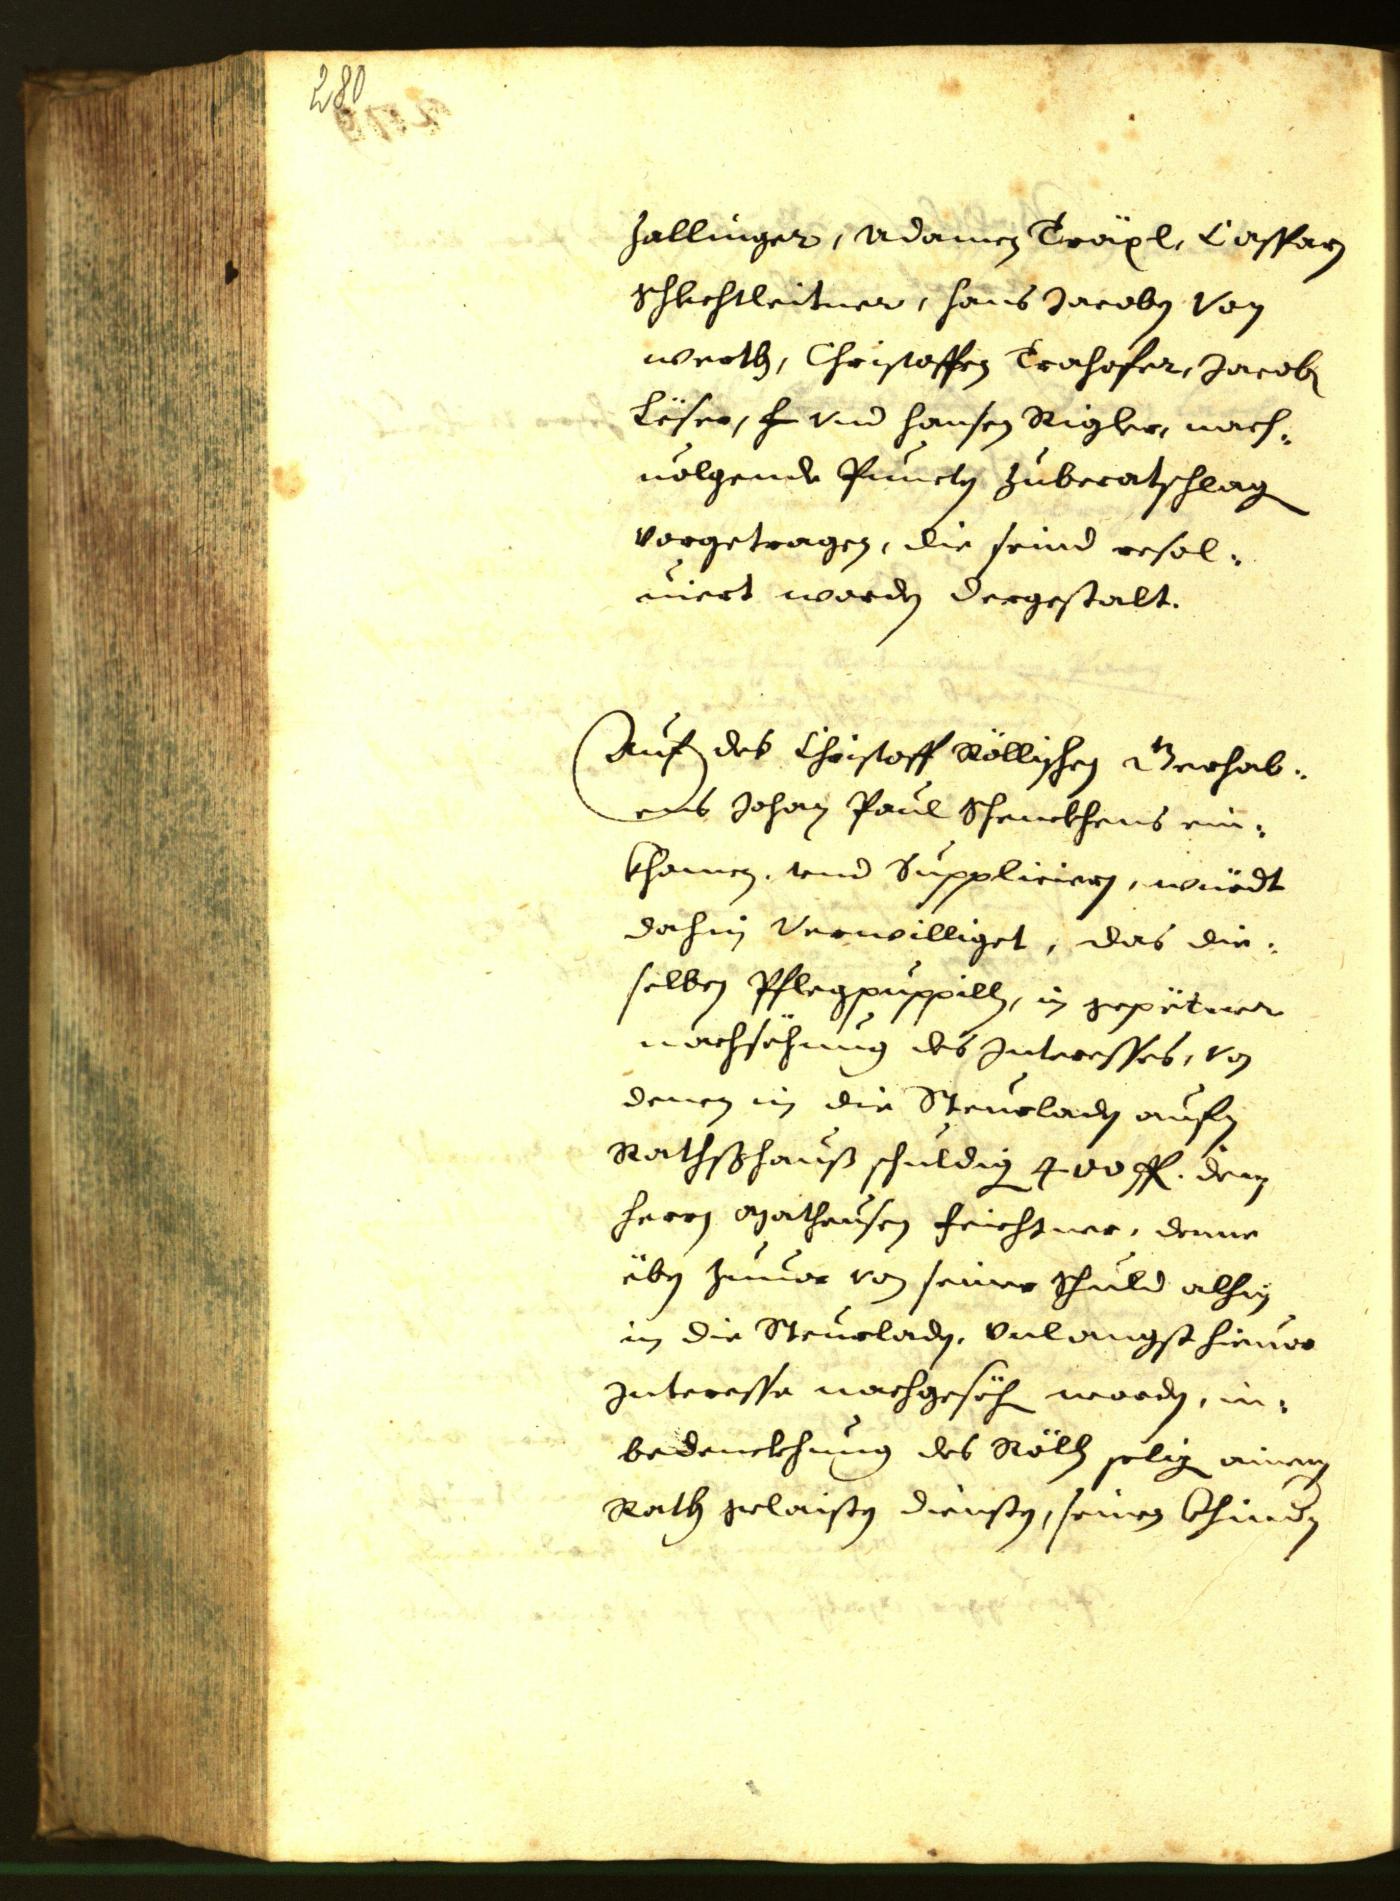 280
Zallinger, Adamen Träxl, Casparn
Schlechtleitner, Hans Jacoben von
Werth, Christoffen Trahofer, Jacob
Löser, und Hansen Rigler, nach¬
uolgende Puncten zuberatschlag
vorgetragen, die seind resol¬
uiert worden dergestalt.
Auf des Christoff Röllischen Gerhab¬
ens Johan Paul Schenckhens ein¬
khomen und Supplicieren, würdt
dahin verwilliget, das die¬
selben Pflegpuppilln, in gepetner
nachsöhung des Interesses, von
denen in die Steurladen aufn
Rathßhauß schuldig 400 fl. dem
Herrn Matheusen Feichtner, deme
eben zuuor von seiner schuld alhie
in die Steurladen, vnlangst hieuor
Interesse nachgesöh worden, in¬
bedenckhung des Rölln selig ainem
Rath gelaisten diensten, seinen Khinden